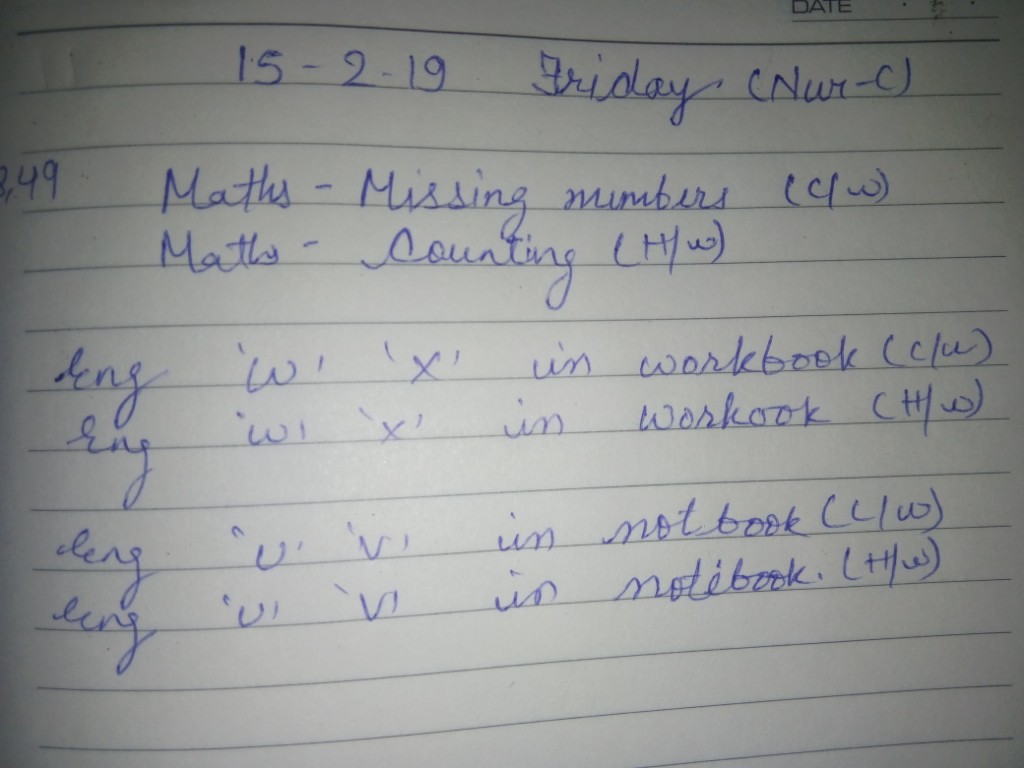 DATE
15-2-19 Friday (Nur-C)
,49 Maths - Missing numbers (C/w)
Maths - Counting (H/w)
Eng 'w' 'x' in workbook (C/w)
Eng 'w' 'x' in workook (H/w)
Eng 'u' 'v' in notbook (C/w)
Eng 'u' 'v' in notebook. (H/w)